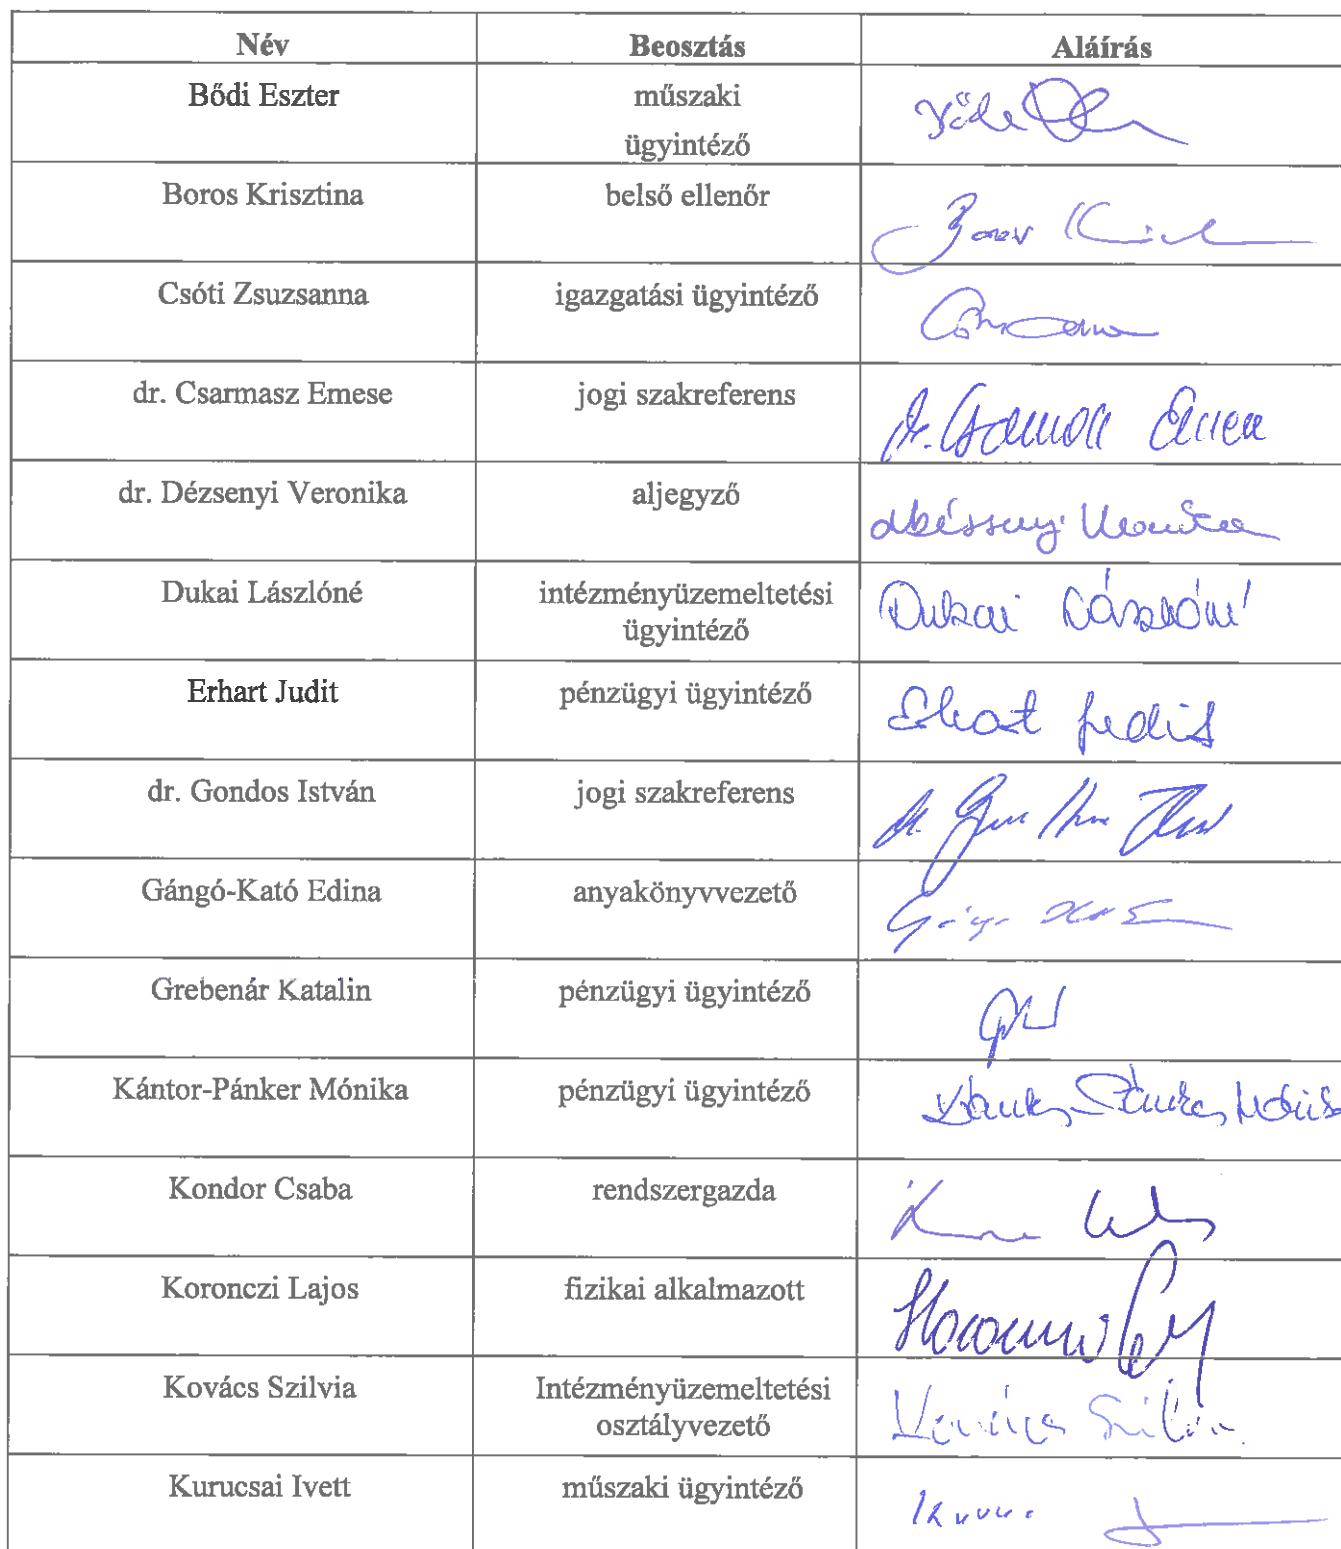 Név Beosztás Aláírás
Bődi Eszter műszaki
ügyintéző
Boros Krisztina belső ellenőr
Csóti Zsuzsanna igazgatási ügyintéző
dr. Csarmasz Emese jogi szakreferens
dr. Dézsenyi Veronika aljegyző
Dukai Lászlóné intézményüzemeltetési Dukai Lászlóné
ügyintéző
Erhart Judit pénzügyi ügyintéző Erhart Judit
dr. Gondos István jogi szakreferens
Gángó-Kató Edina anyakönyvvezető
Grebenár Katalin pénzügyi ügyintéző
Kántor-Pánker Mónika pénzügyi ügyintéző
Kondor Csaba rendszergazda
Koronczi Lajos fizikai alkalmazott
Kovács Szilvia Intézményüzemeltetési Kovács Szilvia
osztályvezető
Kurucsai Ivett műszaki ügyintéző